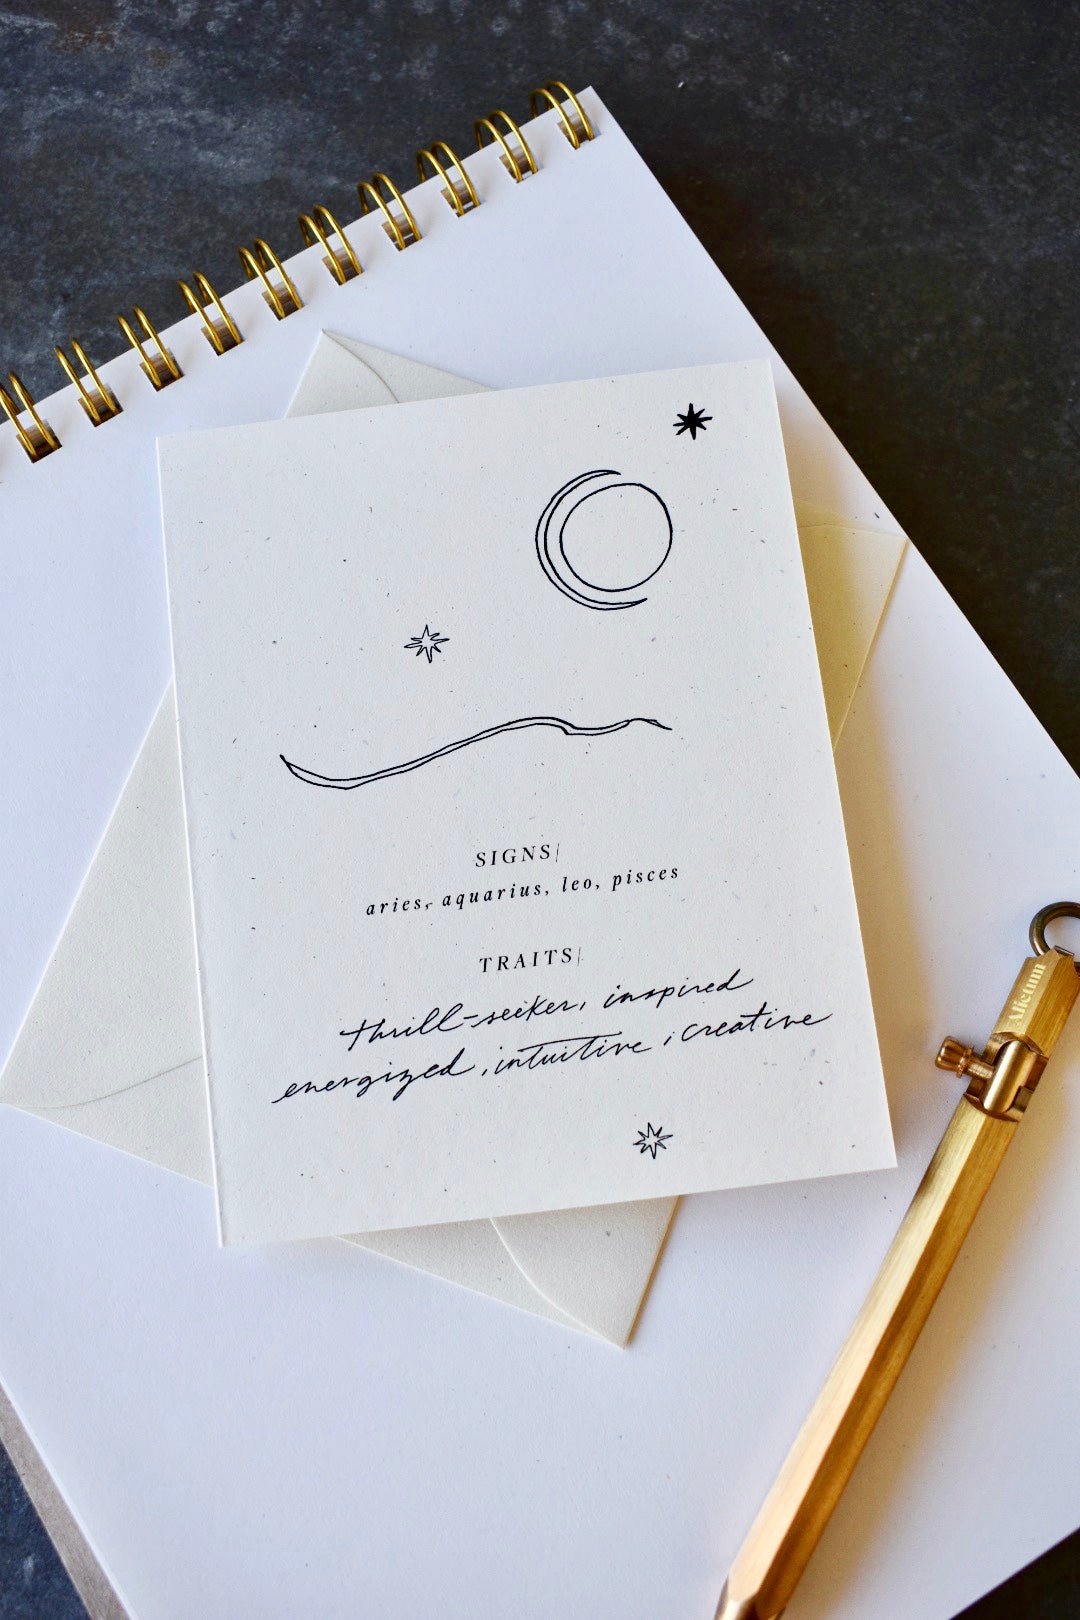 SIGNS|
aries, aquarius, leo, pisces
TRAITS|
thrill-seeker, inspired
energized, intuitive, creative
Alictum